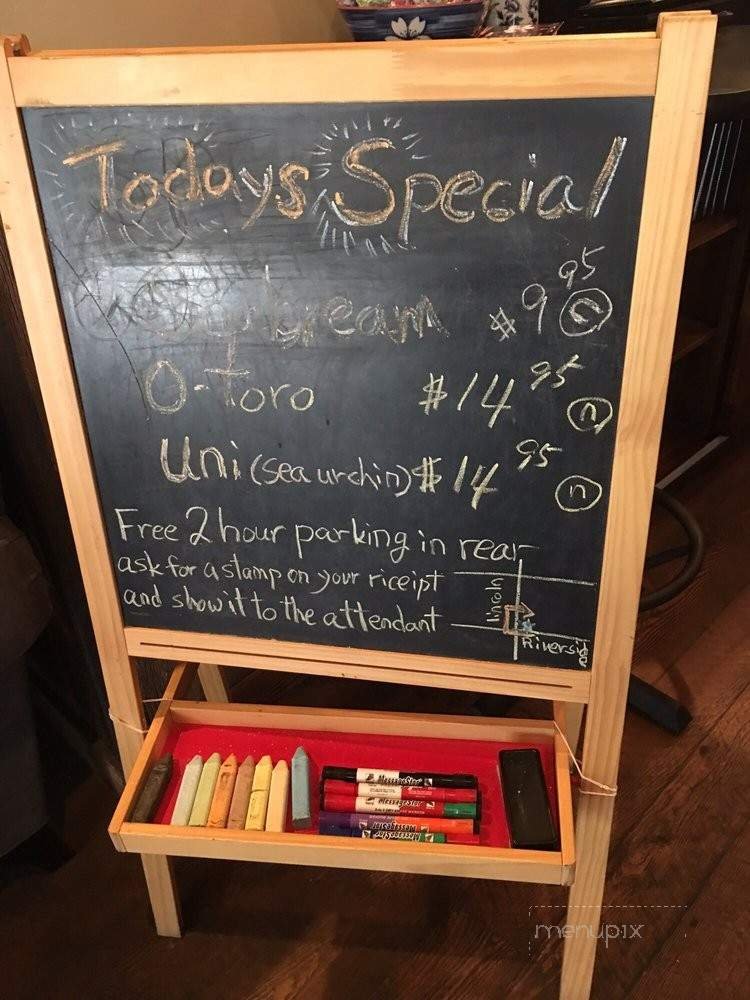 Todays Special
bream $9 95 n
O-toro $14 95 n
Uni (sea urchin) $14 95 n
Free 2 hour parking in rear
ask for a stamp on your riceipt
and show it to the attendant
lincoln
Riverside
MessageStor
MessageStor
MessageStor
MessageStor
menupix